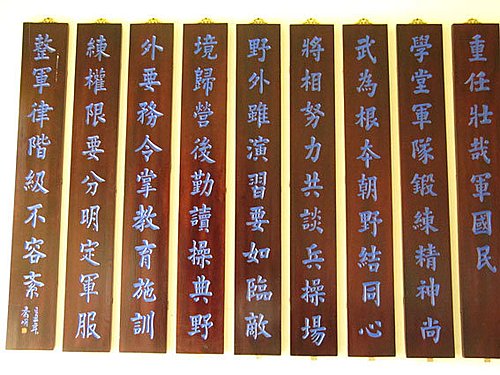 重任壯哉軍國民
學堂軍隊鍛練精神尚
武為根夲朝野結同心
將相努力共談兵操場
野外雖演習要如臨敵
境歸營後勤讀操典野
外要務令掌教育施訓
練權限要分明定軍服
整軍律階級不容紊